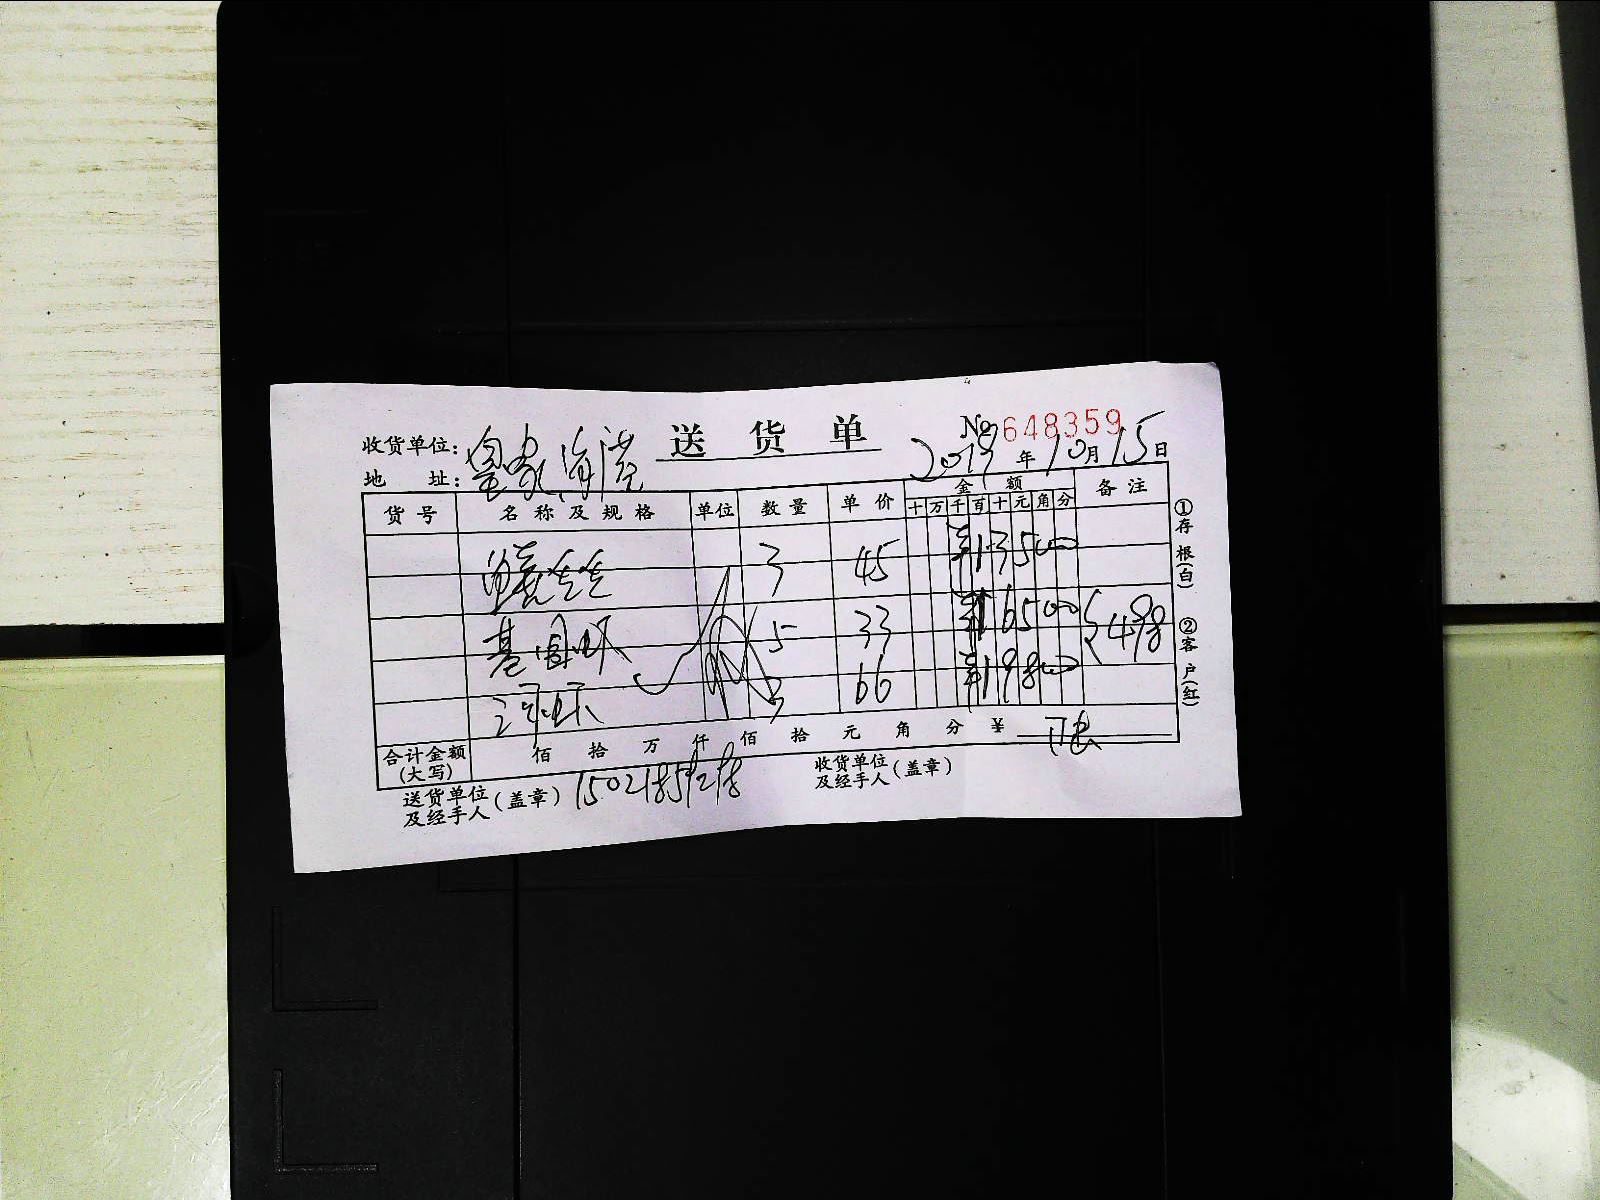 送货单
№ 648359
收货单位:
地 址:
2019年10月15日
货号 名称及规格 单位 数量 单价 金额 备注
十 万 千 百 十 元 角 分
3 45 13500
基围虾 5 33 16500
3 66 19800
498
合计金额(大写) 佰 拾 万 仟 佰 拾 元 角 分 ¥
送货单位及经手人(盖章)
收货单位及经手人(盖章)
①存根(白) ②客户(红)